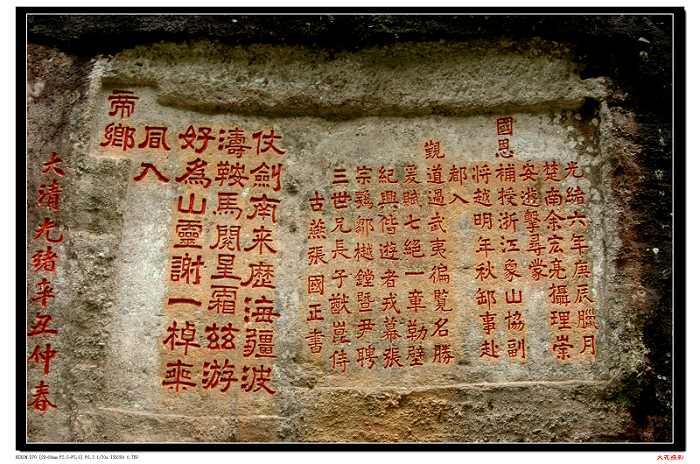 光緒六年庚辰臘月
楚南余宏亮攝理崇
安遊擊尋蒙
國恩補授浙江象山協副
將越明年秋卸事赴
都入
觀道過武夷徧覽名勝
爰賦七絕一章勒壁
紀興偕遊者戎幕張
宗鶚鄒樾鏜暨尹聘
三世兄長子猷崑侍
古燕張國正書
仗劍南来歷海疆波
濤鞍馬閱星霜茲游
好為山靈謝一棹来
同入
帝鄉
大清光緒辛丑仲春
大展摄影